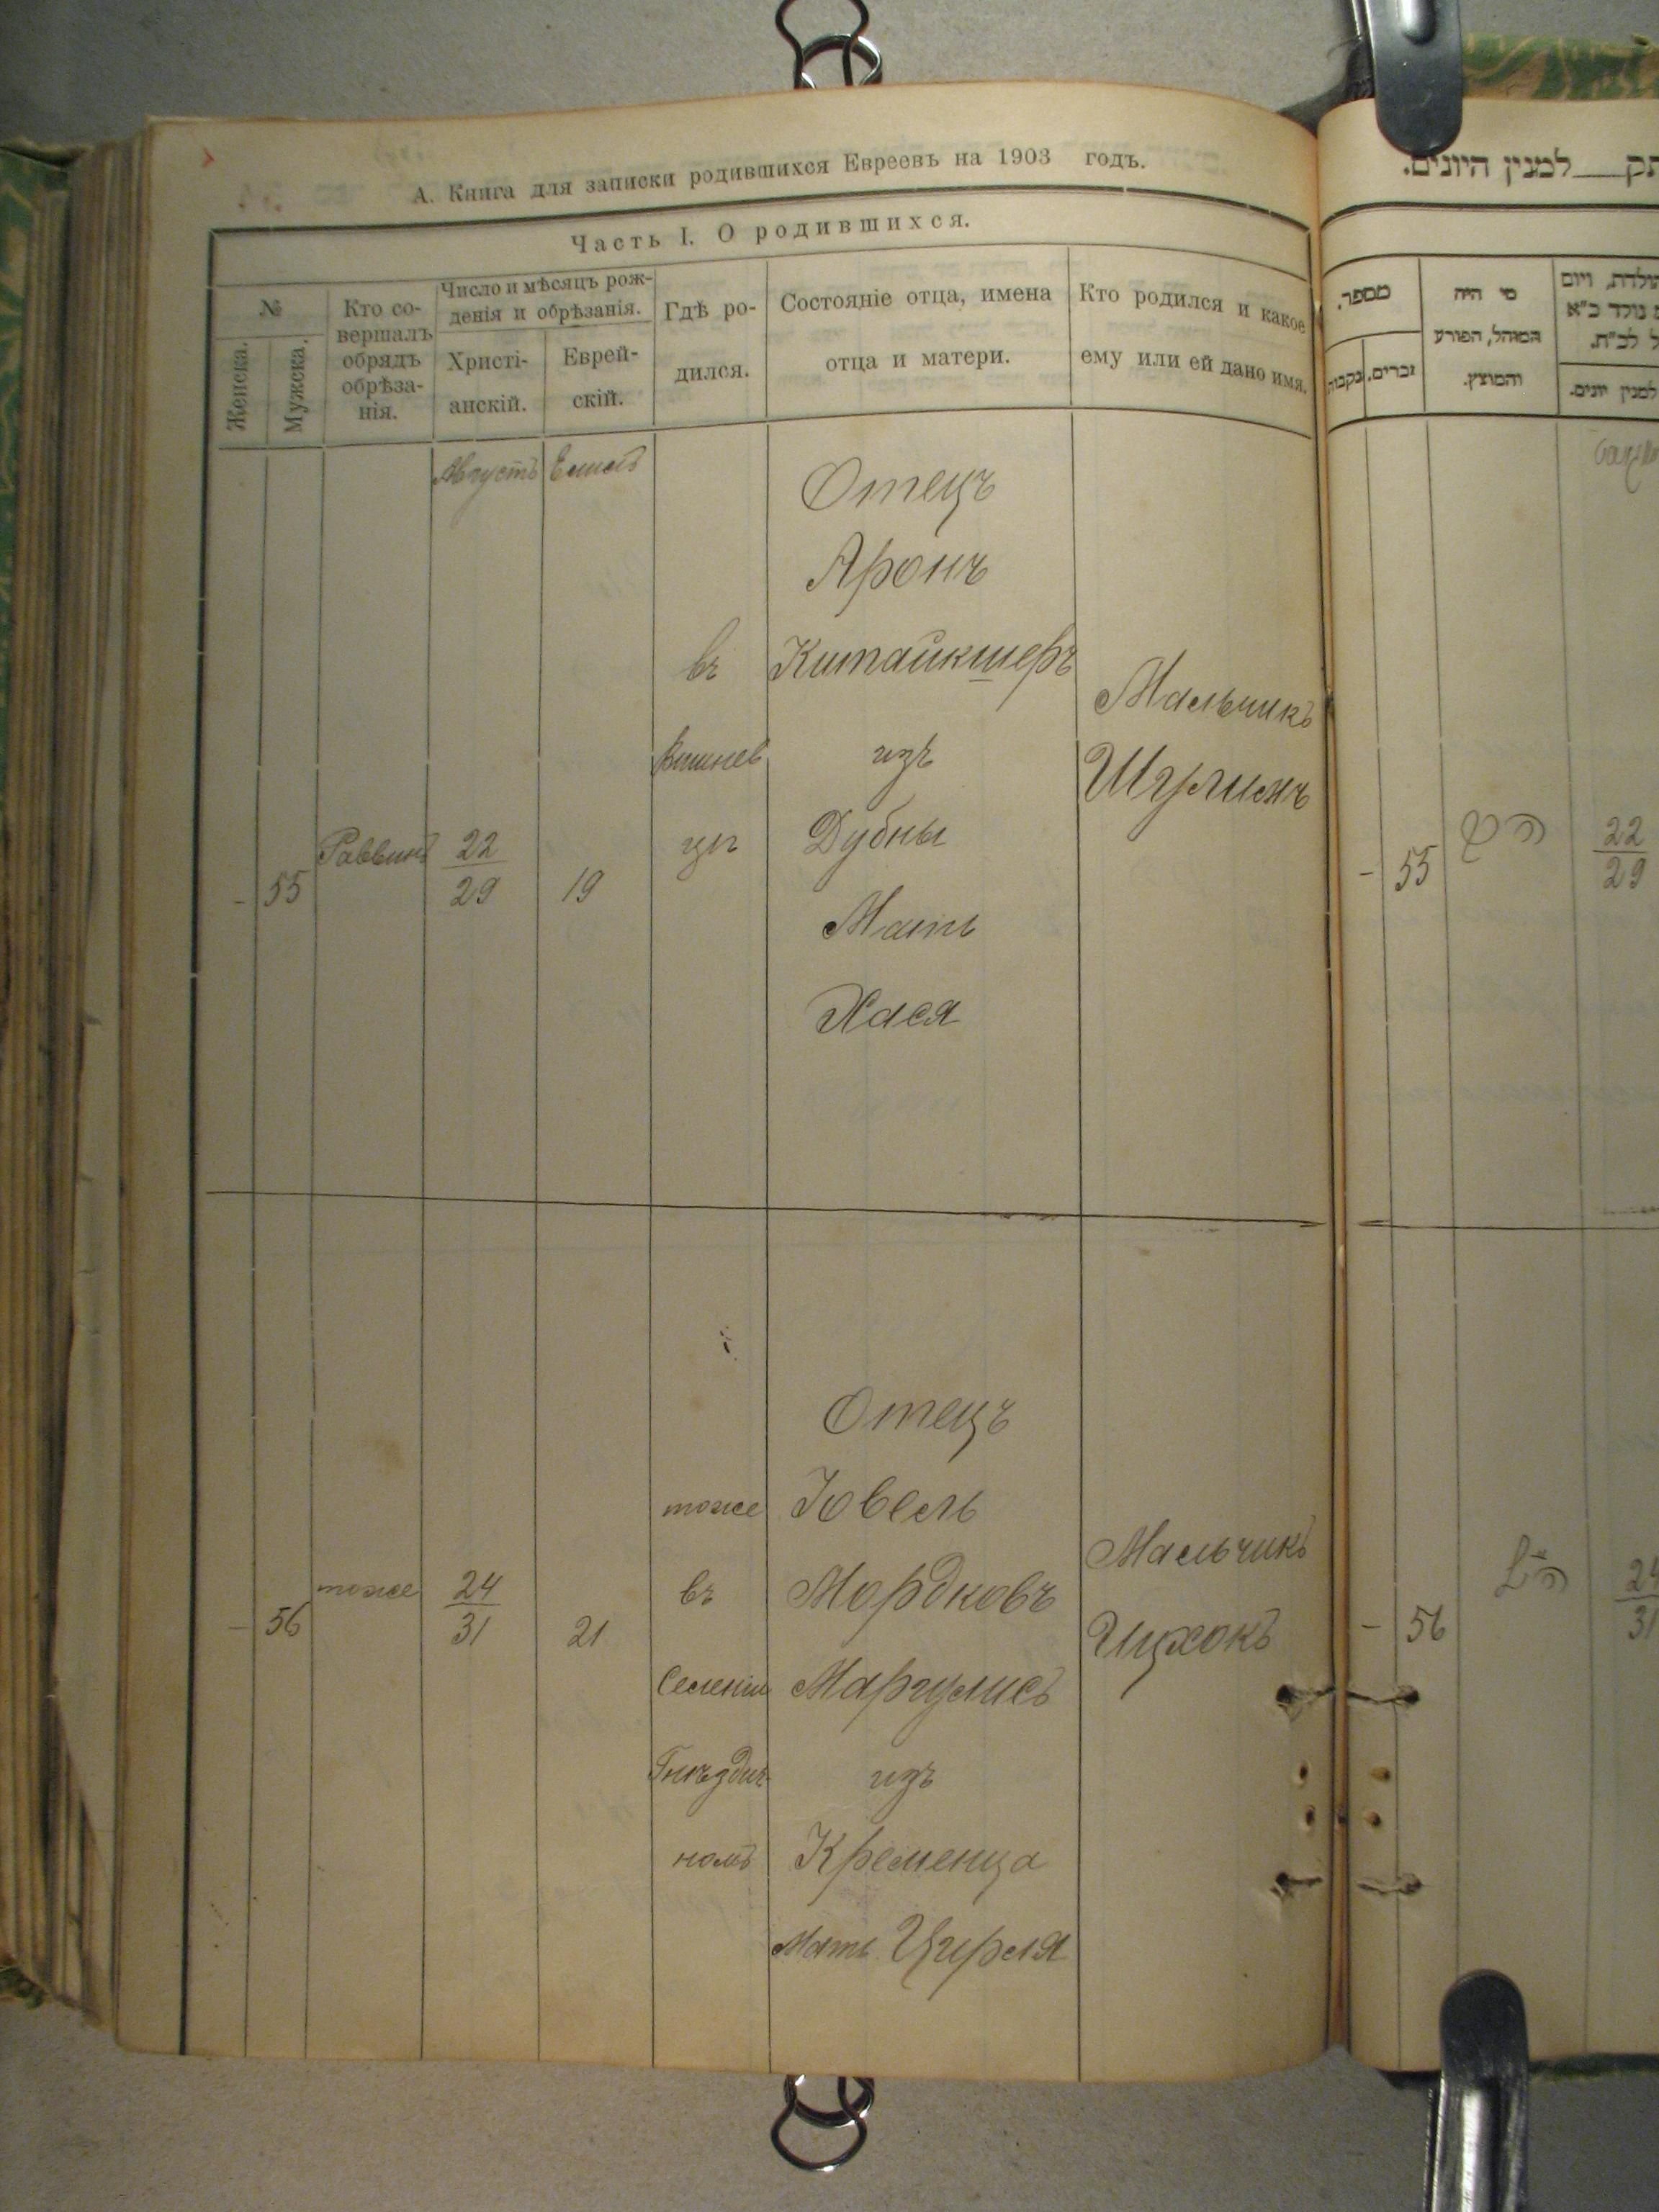 А. Книга для записки родившихся Евреевъ на 1903 годъ.
Часть I. О родившихся.
№
Женска.
Мужска.
Кто со-
вершалъ
обрядъ
обрѣза-
нія.
Число и мѣсяцъ рож-
денія и обрѣзанія.
Христі-
анскій.
Еврей-
скій.
Гдѣ ро-
дился.
Состояніе отца, имена
отца и матери.
Кто родился и какое
ему или ей дано имя.
-
55
Раввинъ
Августъ
22
29
19
въ
Вишнев
цѣ
Отецъ
Аронъ
Китайкшеръ
изъ
Дубны
Мать
Хася
Мальчикъ
-
56
тоже
24
31
21
тоже
въ
Селеніи
Гнѣздич-
номъ
Отецъ
Іовель
Мордковъ
Маргулисъ
изъ
Кременца
Мать Цирля
Мальчикъ
Ицхокъ
למנין היונים.
מספר.
זכרים.
נקבות
מי היה
המוהל, הפורע
והמוצץ.
הולדת, ויום
נולד כ"א
למנין יונים.
-
55
22
29
-
56
24
31